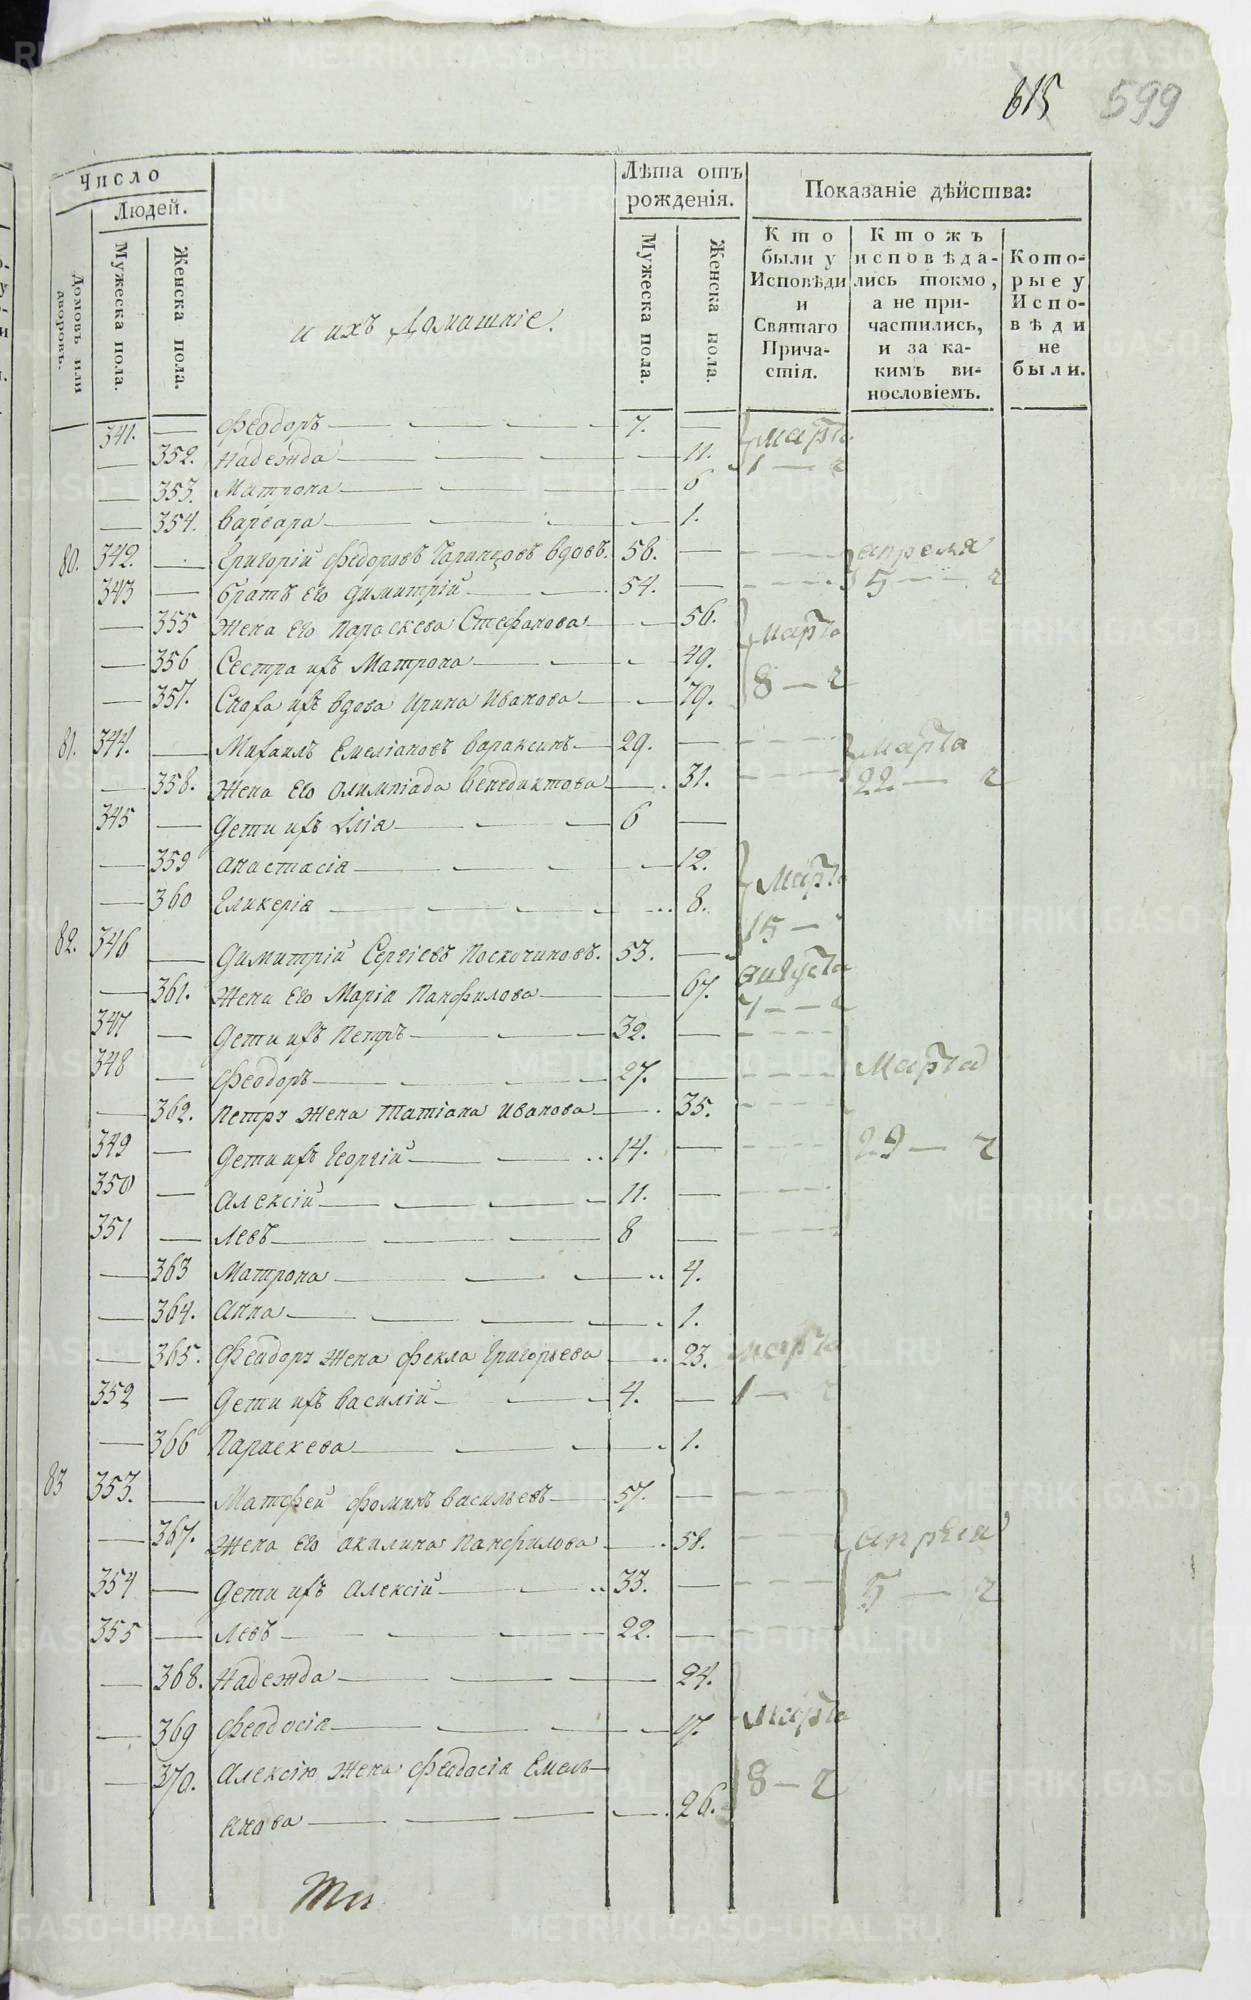 615 599
Число
Людей.
Домовъ или дворовъ.
Мужеска пола.
Женска пола.
и ихъ Домашніе.
Лѣта отъ рожденія.
Мужеска пола.
Женска пола.
Показаніе дѣйства:
Кто были у Исповѣди и Святаго Причастія.
Ктожъ исповѣдались токмо, а не причастились, и за какимъ винословіемъ.
Которые у Исповѣди не были.
341. — Феодоръ — 7. — Марта
— 352. Надежда — 11. 1 — ч
— 353. Матрона — 6
— 354. Варвара — 1.
80. 342. — Григорій Феодоровъ вдовъ. 58. — апреля
343 — братъ его Димитрій — 54. — 5 — ч
— 355 Жена его Параскева Стефанова — 56. Марта
— 356 Сестра ихъ Матрона — 49.
— 357. Сноха ихъ вдова Ирина Иванова — 79. 8 — ч
81. 344. — Михаилъ Емеліановъ Вараксинъ — 29. — Марта
— 358. Жена его Олимпіада Венедиктова — 31. 22 — ч
345 — Дети ихъ Илія — 6 —
— 359 Анастасія — 12. Марта
— 360 Гликерія — 8. 15 —
82. 346 — Димитрій Сергіевъ Поскочиновъ. 53. — августа
— 361. Жена его Марія Панфилова — 67. 7 — ч
347 — Дети ихъ Петръ — 32. —
348 — Феодоръ — 27. — Марта
— 362. Петра Жена Татіана Иванова — 35.
349 — Дети ихъ Георгій — 14. — 29 — ч
350 — Алексій — 11. —
351 — Левъ — 8 —
— 363 Матрона — 4.
— 364. Анна — 1.
— 365. Феодора Жена Фекла Григорьева — 23. марта
352 — Дети ихъ Василій — 4. — 1 — ч
— 366 Параскева — 1.
83 353. — Матфей Фоминъ Васильевъ — 57. —
— 367. Жена его Акилина Панфилова — 58. апреля
354 — Дети ихъ Алексій — 33. — 5 — ч
355 — Левъ — 22. —
— 368. Надежда — 24.
— 369 Феодосія — 17. Марта
— 370. Алексія Жена Феодосія Емель-
янова — 26. 8 — ч
METRIKI.GASO-URAL.RU